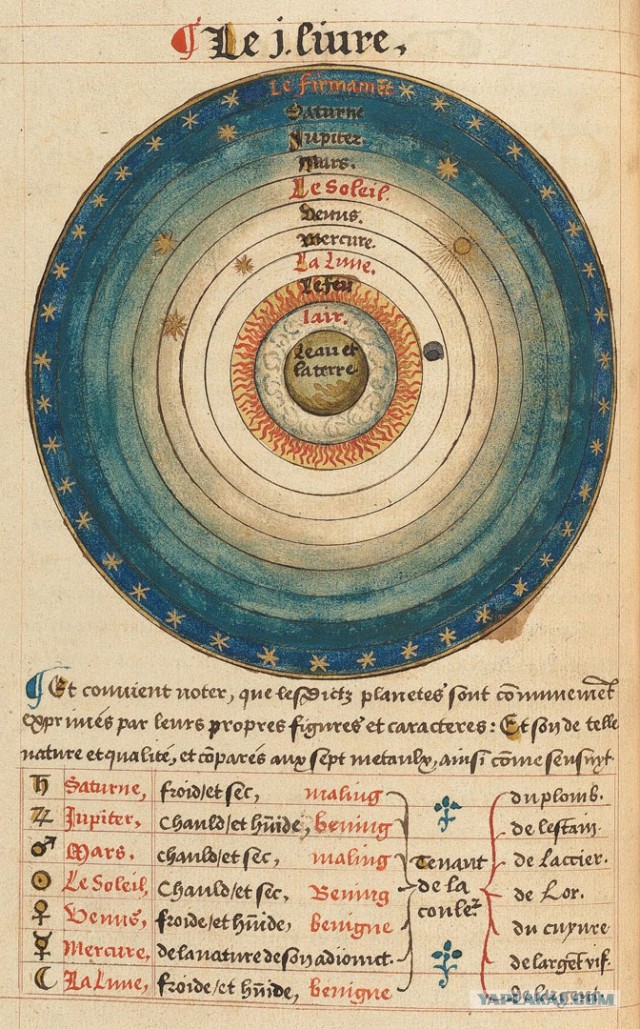 Le j. liure,
Le firmamēt
Saturne
Jupiter.
Mars.
Le Soleil.
Venus.
Mercure.
La Lune.
Le feu
lair.
Leau et
la terre
Et conuient noter, que lesdictz planetes sont cōmunemēt
exprimés par leurs propres figures et caracteres: Et son de telle
nature et qualité, et cōparés aux sept metaulx, ainsi cōme sensuyt.
♄ Saturne, froid/et sec, maling du plomb.
♃ Jupiter, Chauld/et hūide, bening de lestain.
♂ Mars. chauld/et sec, maling Tenant de laccier.
☉ Le Soleil, Chauld/et sec, Bening de la de Lor.
♀ Venus, froide/et hūide, benigne coule.r du cuyure
☿ Mercure, de la nature de son adioinct. de largēt vif.
☾ La Lune, froide/et hūide, benigne de largent
YAPLAKAL.COM